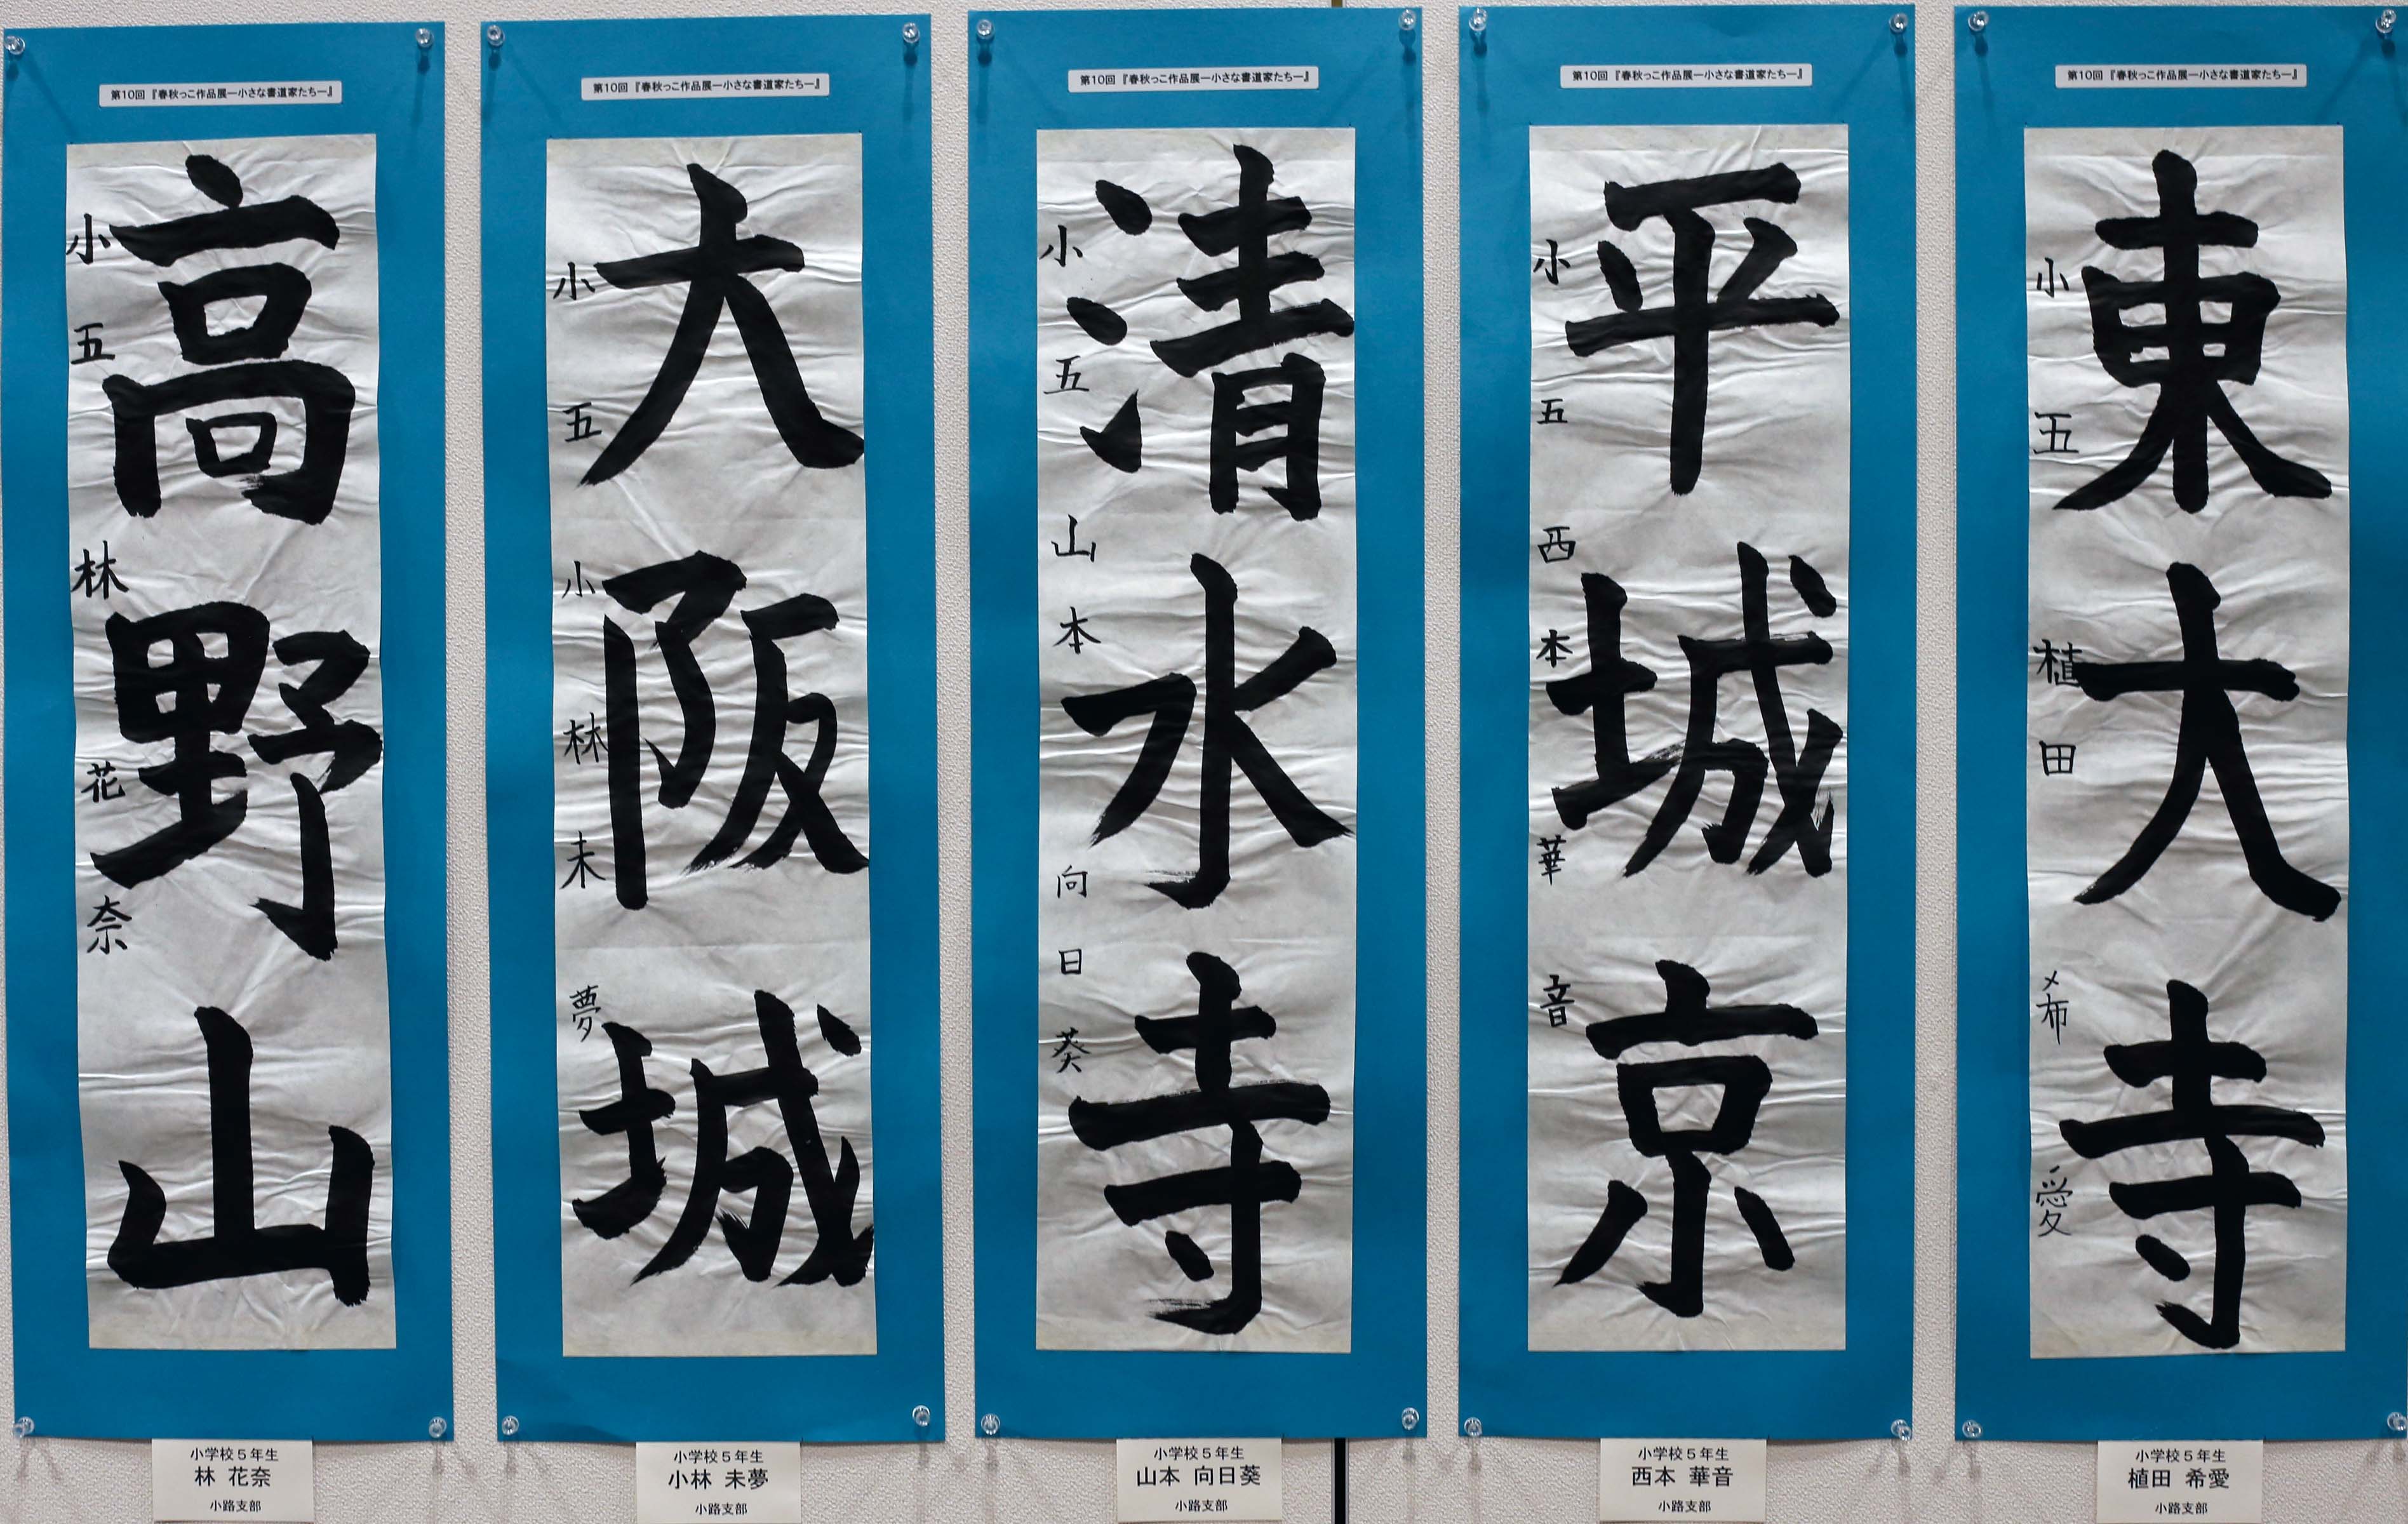 第10回『春秋っこ作品展―小さな書道家たち―』
高野山
小五 林 花奈
小学校5年生
林 花奈
小路支部
第10回『春秋っこ作品展―小さな書道家たち―』
大阪城
小五 小林未夢
小学校5年生
小林 未夢
小路支部
第10回『春秋っこ作品展―小さな書道家たち―』
清水寺
小五 山本 向日葵
小学校5年生
山本 向日葵
小路支部
第10回『春秋っこ作品展―小さな書道家たち―』
平城京
小五 西本 華音
小学校5年生
西本 華音
小路支部
第10回『春秋っこ作品展―小さな書道家たち―』
東大寺
小五 植田 希愛
小学校5年生
植田 希愛
小路支部